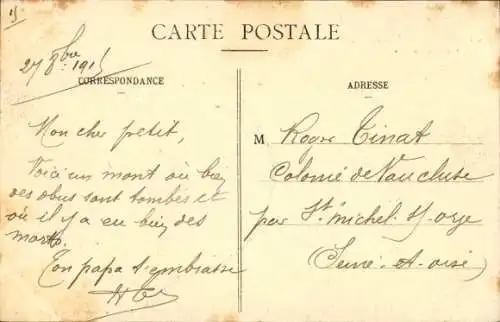 CARTE POSTALE
27 8bre 1915
CORRESPONDANCE
Mon cher petit,
Voici un mont où bien
des obus sont tombés et
où il y a eu bien des
morts.
Ton papa t'embrasse
ADRESSE
M Roger Tinat
Colonie de Vaucluse
par St Michel s/ orge
(Seine-et-oise)